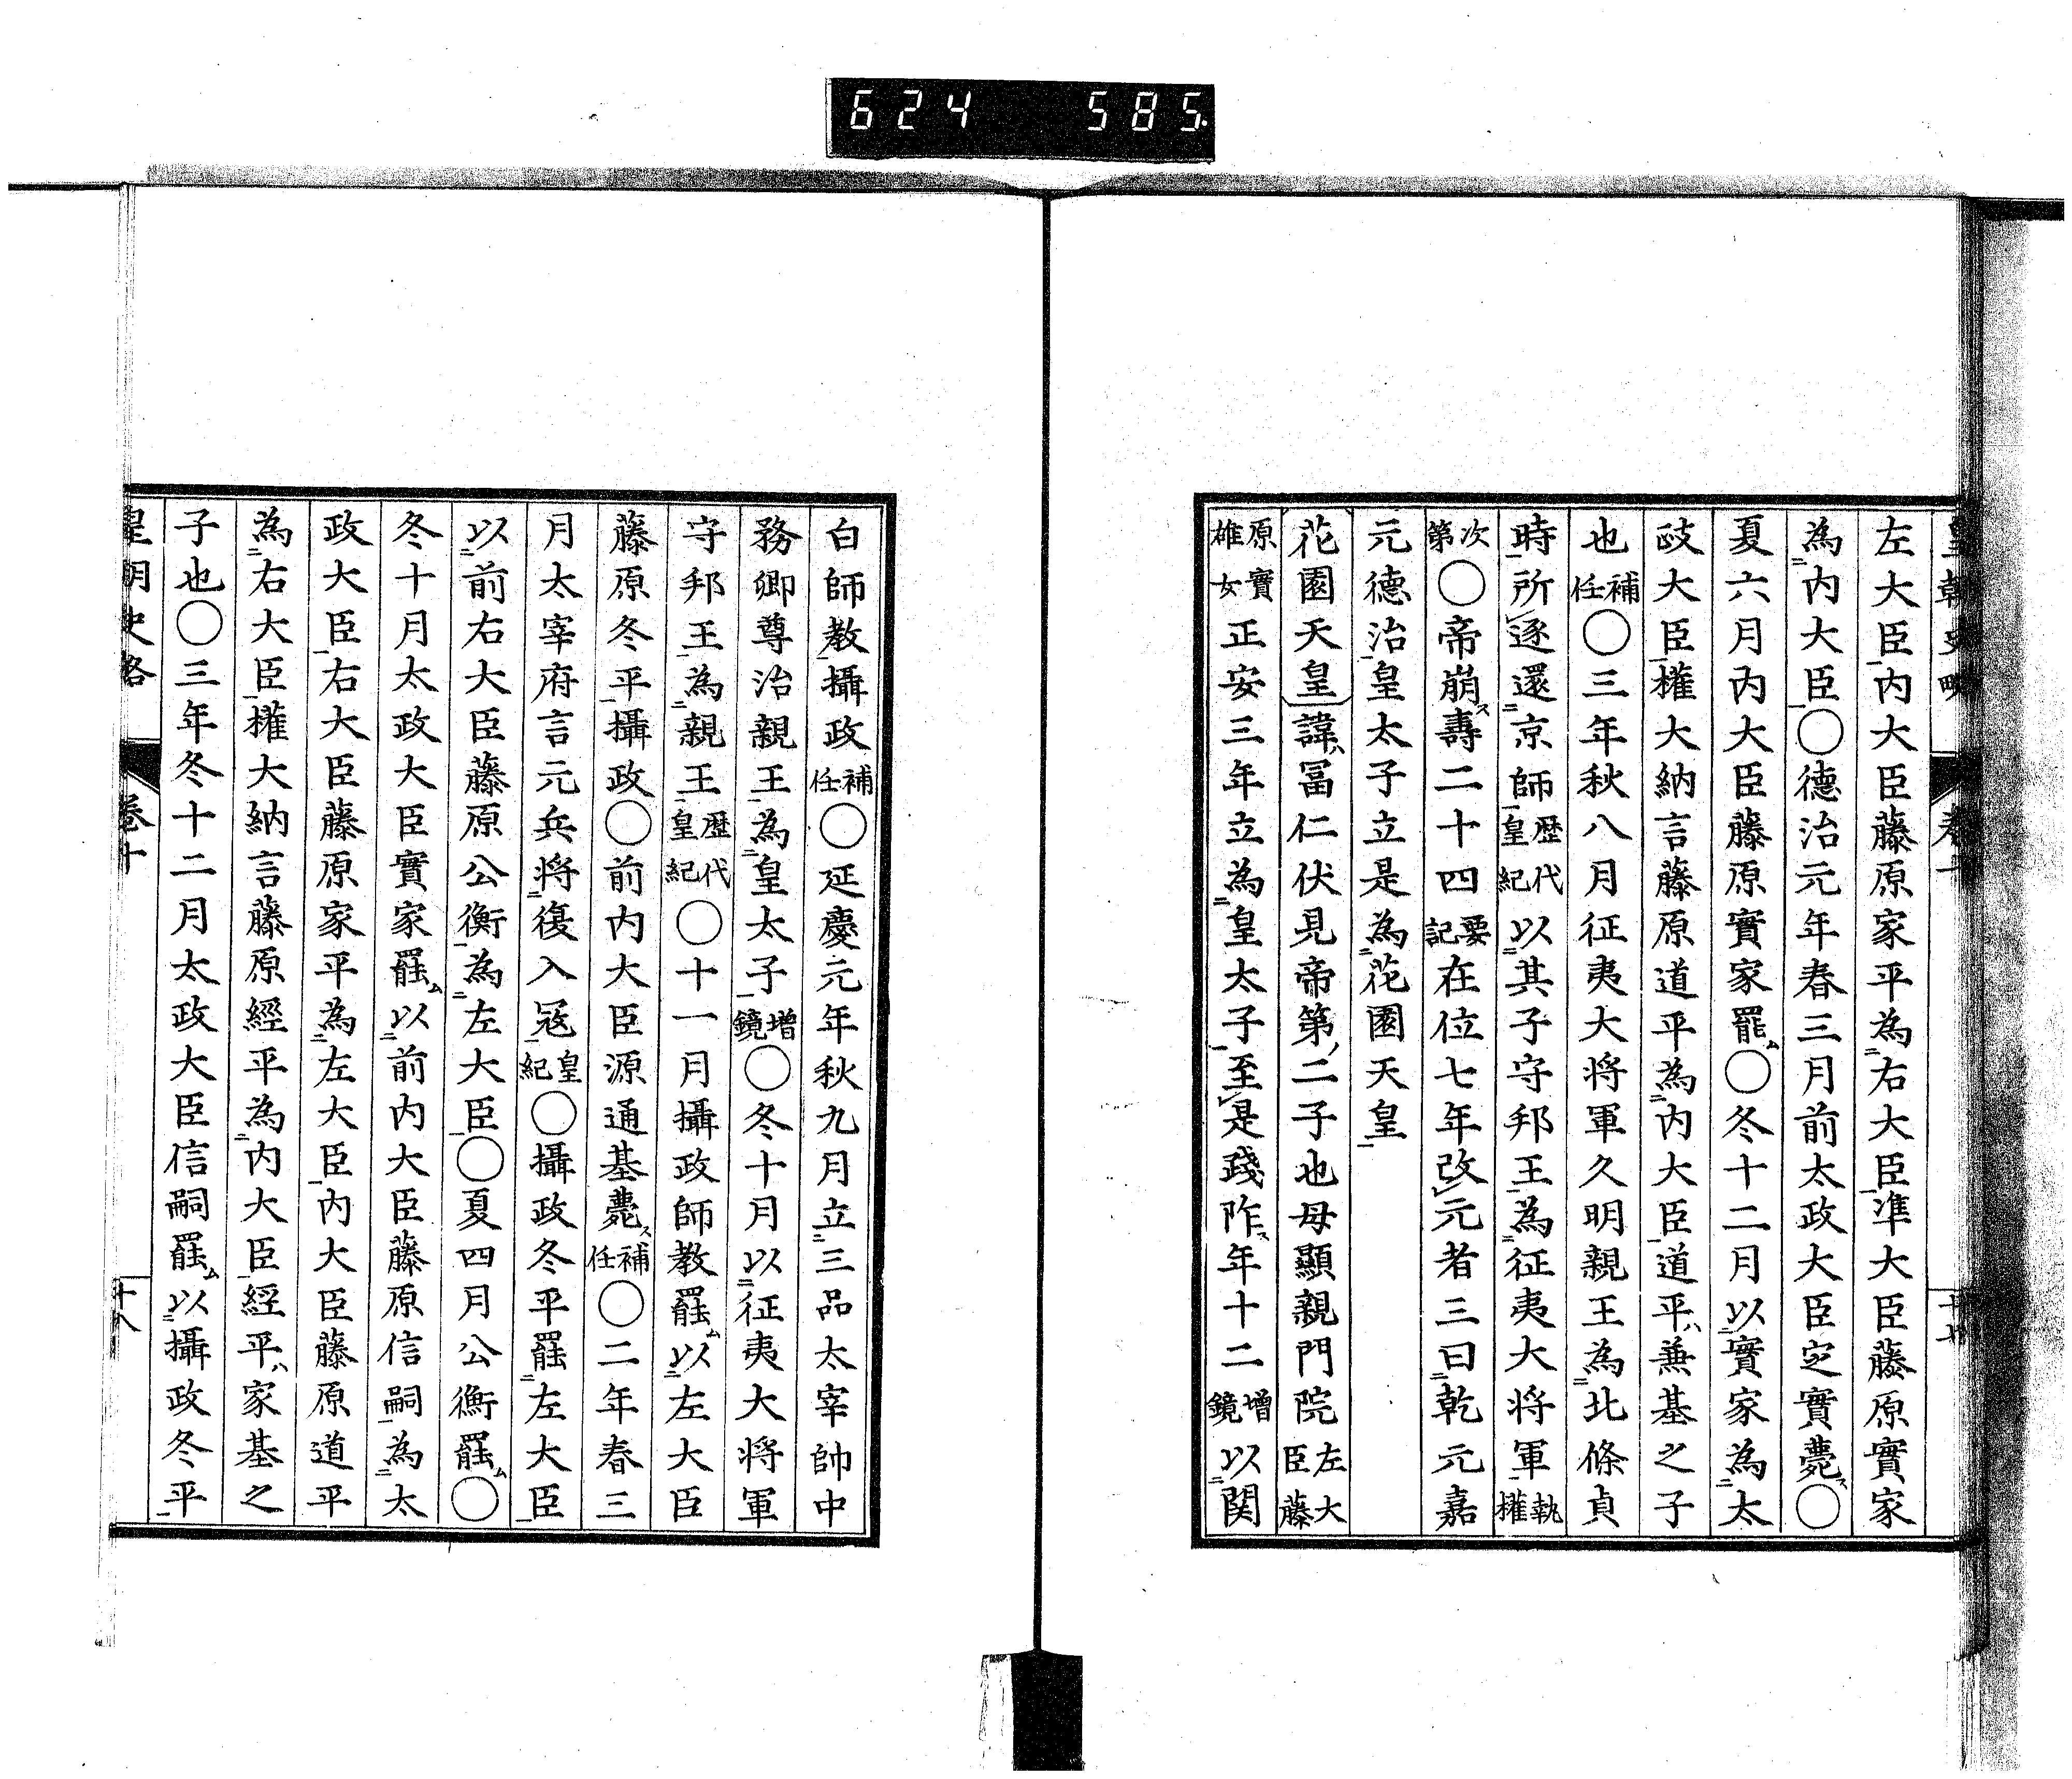 624 585
皇朝史略 卷十 十七
左大臣内大臣藤原家平為右大臣準大臣藤原實家
為内大臣○德治元年春三月前太政大臣定實薨○
夏六月内大臣藤原實家罷○冬十二月以實家為太
政大臣權大納言藤原道平為内大臣道平兼基之子
也補任○三年秋八月征夷大将軍久明親王為北條貞
時所逐還京師歷代皇紀以其子守邦王為征夷大将軍執權
次第○帝崩壽二十四要記在位七年改元者三曰乾元嘉
元德治皇太子立是為花園天皇
花園天皇諱冨仁伏見帝第二子也母顯親門院左大臣藤
原實雄女正安三年立為皇太子至是踐阼年十二增鏡以関
白師教攝政補任○延慶元年秋九月立三品太宰帥中
務卿尊治親王為皇太子增鏡○冬十月以征夷大将軍
守邦王為親王歷代皇紀○十一月攝政師教罷以左大臣
藤原冬平攝政○前内大臣源通基薨補任○二年春三
月太宰府言元兵将復入冦皇紀○攝政冬平罷左大臣
以前右大臣藤原公衡為左大臣○夏四月公衡罷○
冬十月太政大臣實家罷以前内大臣藤原信嗣為太
政大臣右大臣藤原家平為左大臣内大臣藤原道平
為右大臣權大納言藤原經平為内大臣經平家基之
子也○三年冬十二月太政大臣信嗣罷以攝政冬平
皇朝史略 卷十 十八